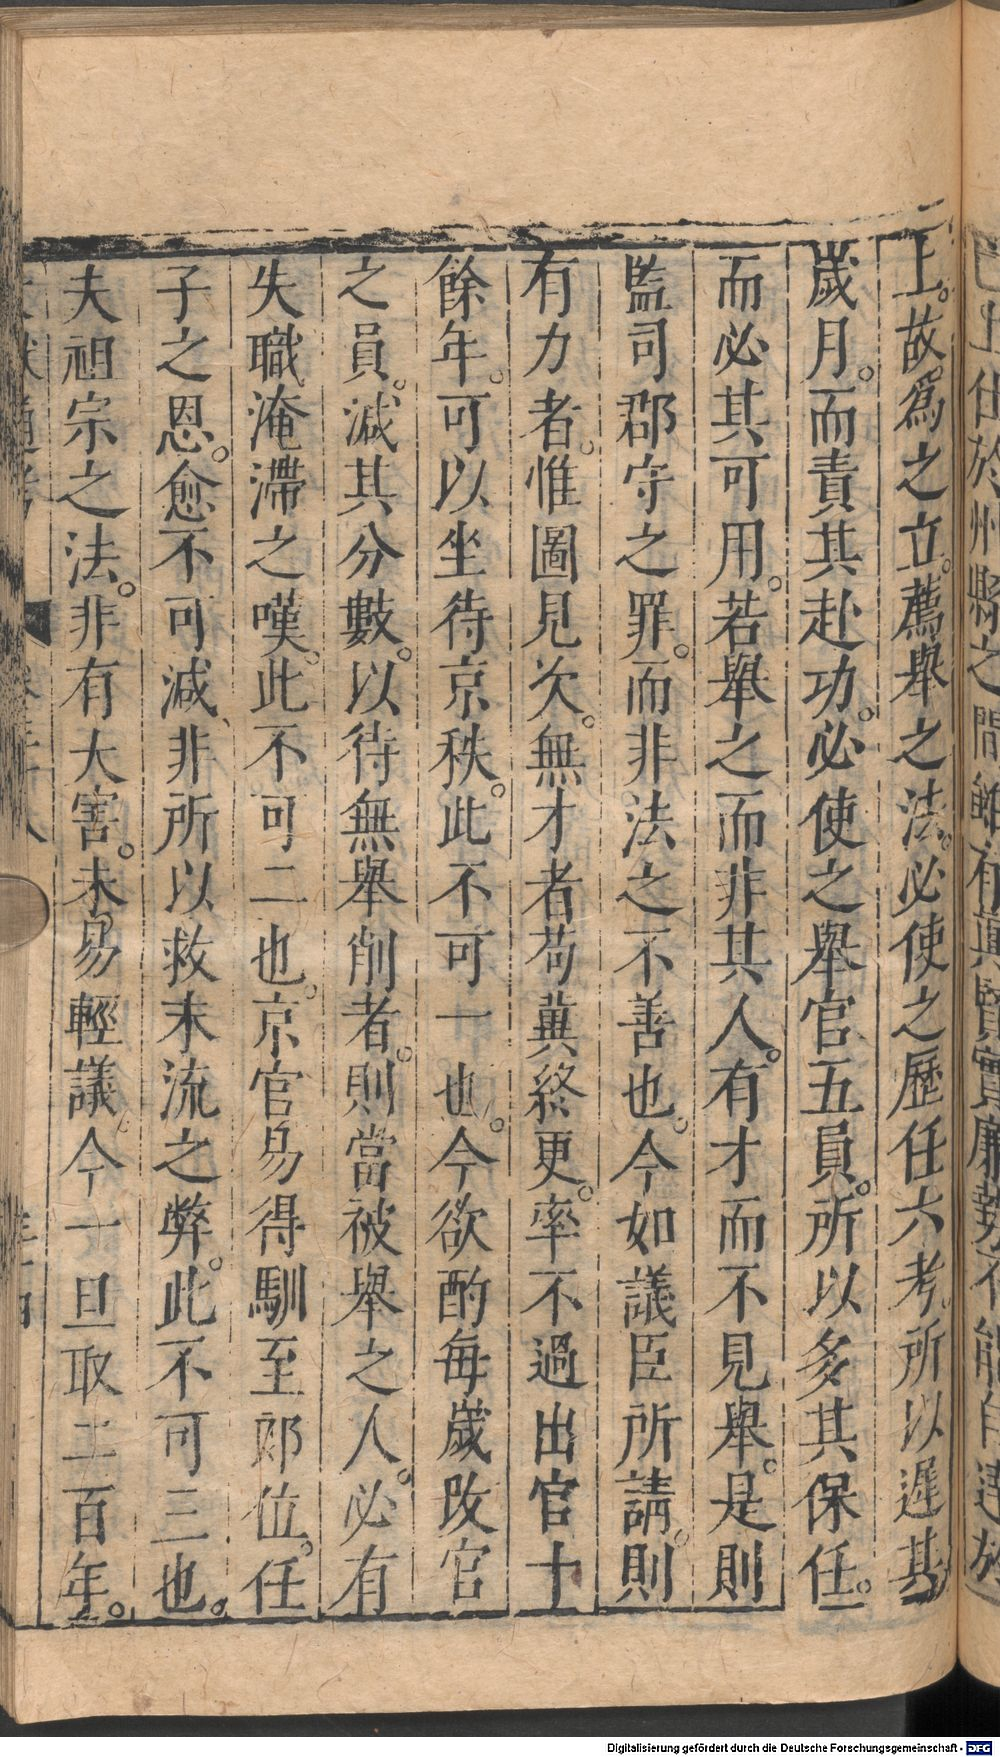 上。故爲之立。薦舉之法。必使之歷任六考。所以遲其
歲月。而責其赴功。必使之舉官五員。所以多其保任。
而必其可用。若舉之而非其人。有才而不見舉。是則
監司郡守之罪。而非法之不善也。今如議臣所請。則
有力者。惟圖見次。無才者苟冀終更。率不過出官十
餘年。可以坐待京秩。此不可一也。今欲酌每歲改官
之員。減其分數。以待無舉削者。則當被舉之人。必有
失職淹滯之嘆。此不可二也。京官易得馴至郎位。任
子之恩。愈不可減、非所以救末流之弊。此不可三也。
夫祖宗之法。非有大害。未易輕議。今一旦取二百年。
Digitalisierung gefördert durch die Deutsche Forschungsgemeinschaft - DFG